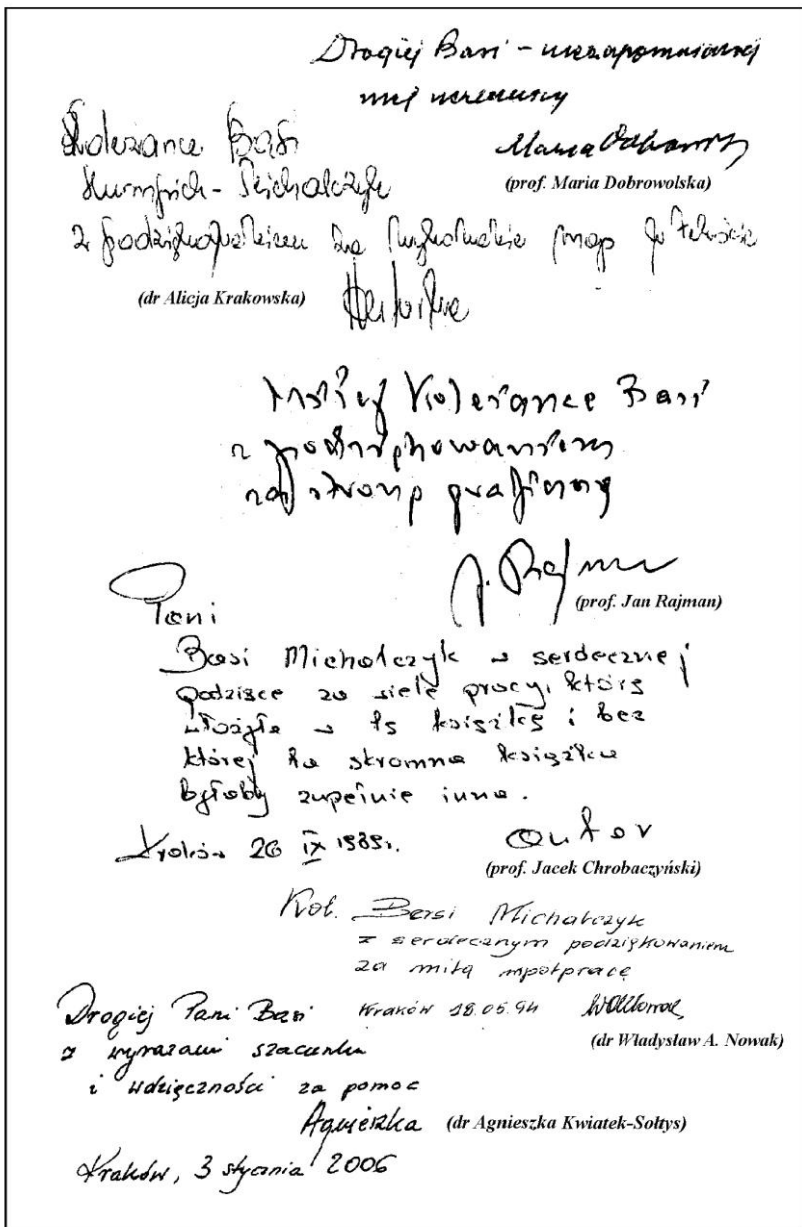 Drogiej Basi – niezapomnianej
mej uczennicy
(prof. Maria Dobrowolska)
Koleżance Basi
Michalczyk
z podziękowaniem za wykonanie map
(dr Alicja Krakowska)
Miłej Koleżance Basi
z podziękowaniem
za stronę graficzną
J. Rajman
(prof. Jan Rajman)
Pani
Basi Michalczyk w serdecznej
podzięce za wiele pracy, którą
włożyła w tę książkę i bez
której ta skromna książka
byłaby zupełnie inna.
Kraków 26 IX 1989r.
autor
(prof. Jacek Chrobaczyński)
Kol. Basi Michalczyk
z serdecznym podziękowaniem
za miłą współpracę
Kraków 18.05.94
(dr Władysław A. Nowak)
Drogiej Pani Basi
z wyrazami szacunku
i wdzięczności za pomoc
Agnieszka
(dr Agnieszka Kwiatek-Sołtys)
Kraków, 3 stycznia 2006